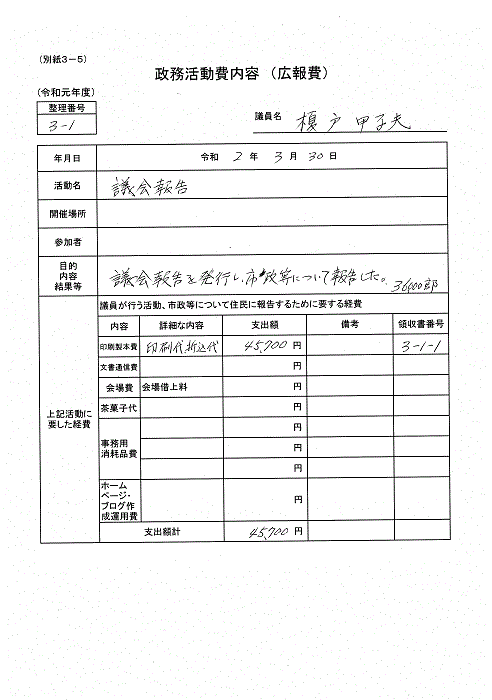 (別紙3-5)
政務活動費内容 (広報費)
(令和元年度)
整理番号
3-1
議員名 榎戸甲子夫
年月日 令和 2 年 3 月 30 日
活動名 議会報告
開催場所
参加者
目的
内容
結果等
議会報告を発行し、市政等について報告した。
36,400部
上記活動に
要した経費
議員が行う活動、市政等について住民に報告するために要する経費
内容 詳細な内容 支出額 備考 領収書番号
印刷製本費 印刷代、折込代 45,700 円 3-1-1
文書通信費 円
会場費 会場借上料 円
茶菓子代 円
事務用
消耗品費
円
円
円
ホーム
ページ・
ブログ作
成運用費
円
支出額計 45,700 円